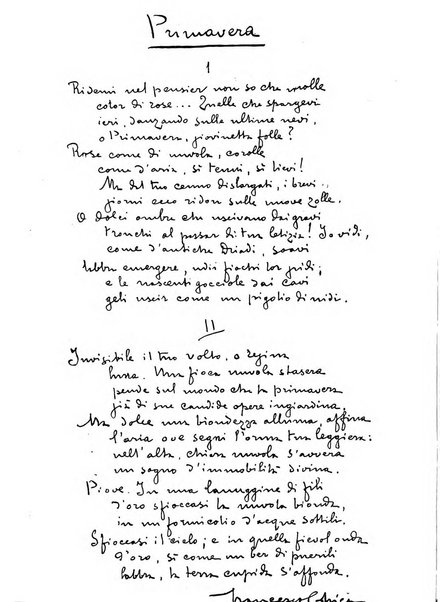 Primavera
I
Ridemi nel pensier non so che molle
color di rose... Quelle che spargevi
ieri, danzando sulle ultime nevi,
o Primavera, giovinetta folle?
Rose come di nuvola, corolle
come d'aria, sì tenui, sì lievi!
Ma del tuo cenno disborgati, i brevi
giorni ecco ridon sulle nuove zolle.
O dolci ombre che uscivano dai gravi
tronchi al passar di tua letizia! Io vidi,
come d'antiche Driadi, soavi
labbra emergere, udii fiochi lor gridi;
e le nascenti gocciole dai cavi
geli uscir come un pigolio di nidi.
II
Invisibile il tuo volto, o regina
luna. Una fioca nuvola stasera
pende sul mondo che la primavera
già di sue candide opere ingiardina.
Ma dolce una biondezza alluma, affina
l'aria ove segni l'orma tua leggiera:
nell'alta, chiara nuvola s'avvera
un sogno d'immobilità divina.
Piove. In una lanuggine di fili
d'oro sfioccasi la nuvola bionda,
in un formicolio d'acque sottili.
Sfioccasi il cielo; e in quella fievol onda
d'oro, sì come un ber di puerili
labbra, la terra cupida s'affonda.
Francesco